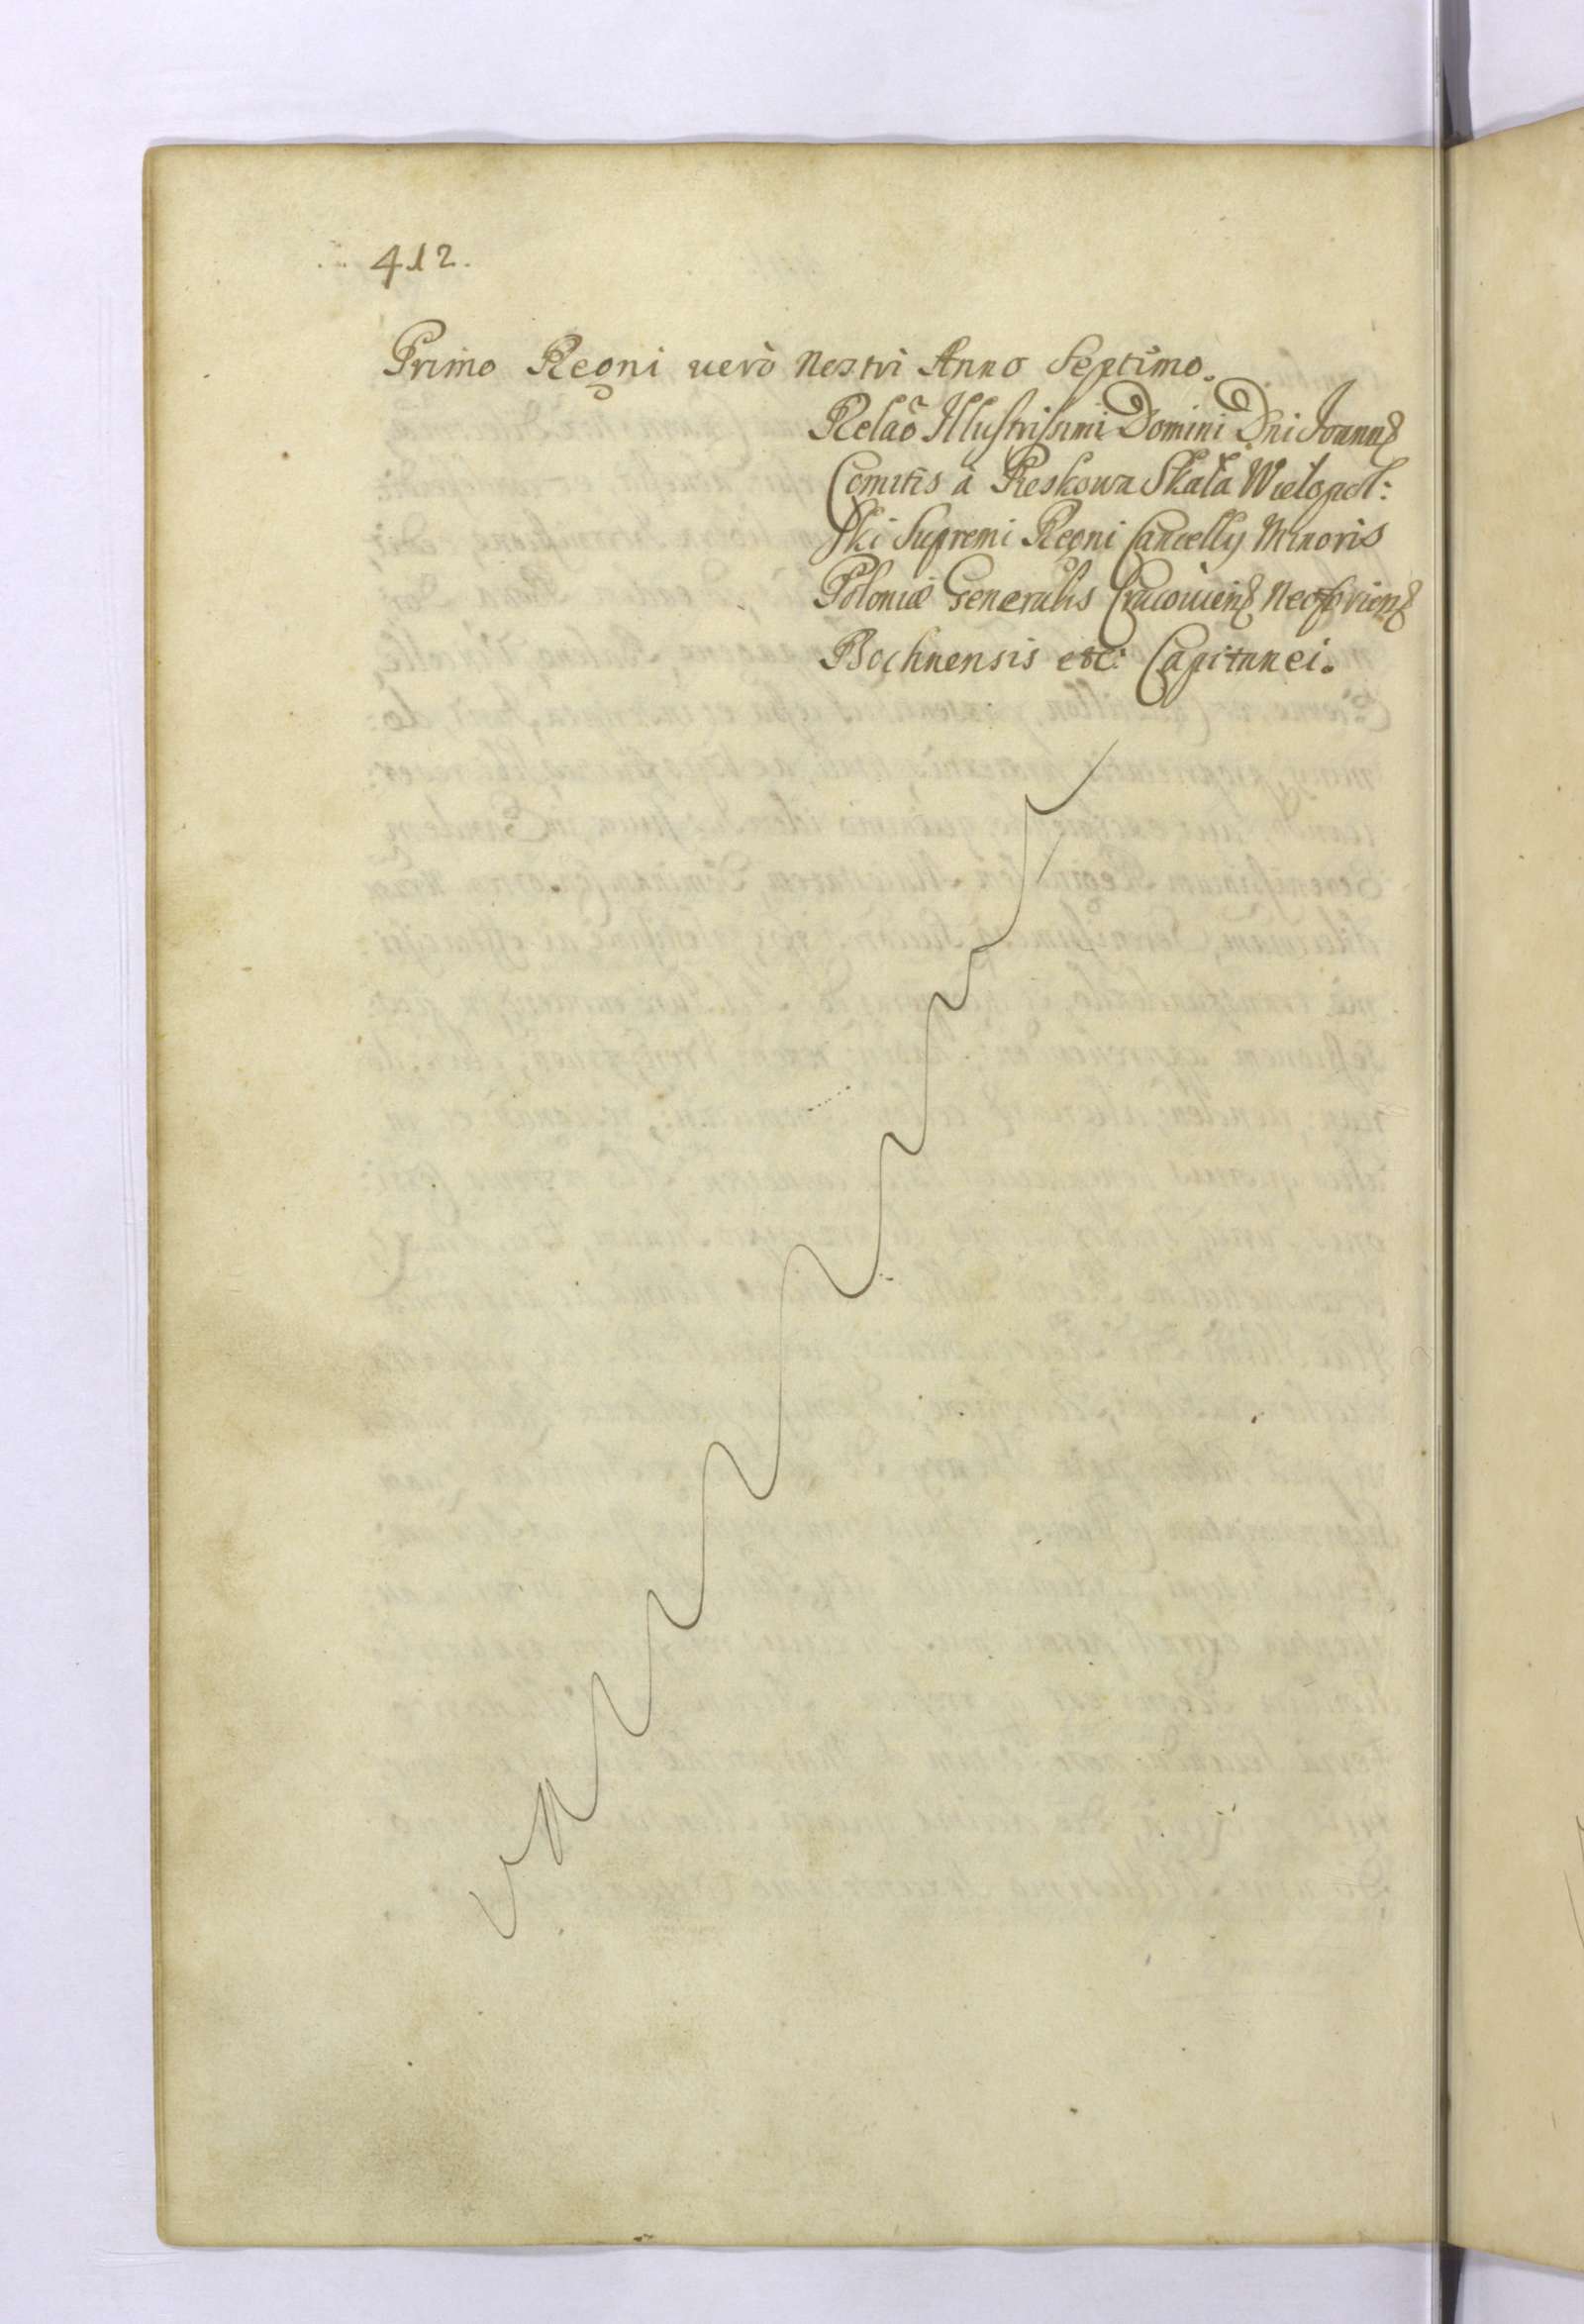 412.
Primo Regni verò Nostri Anno Septimo.
Relaõ Illustrissimi Domini Dni Joannis
Comitis à Pieskowa Skała Wielopol:
ski Supremi Regni Cancellŷ Minoris
Poloniæ Generalis Cracouiens Neoforiens
Bochnensis etc: Capitanei.